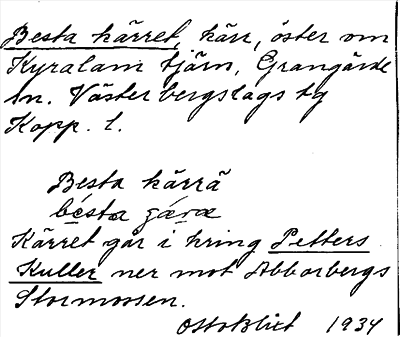 Besta kärret, kärr, öster om
Kyralam tjärn, Grangärde
sn. Väster bergslags tg
Kopp. l.
Besta kärrä
Kärret går i kring Petters
Kuller ner mot Abborbergs
Stormossen.
1934